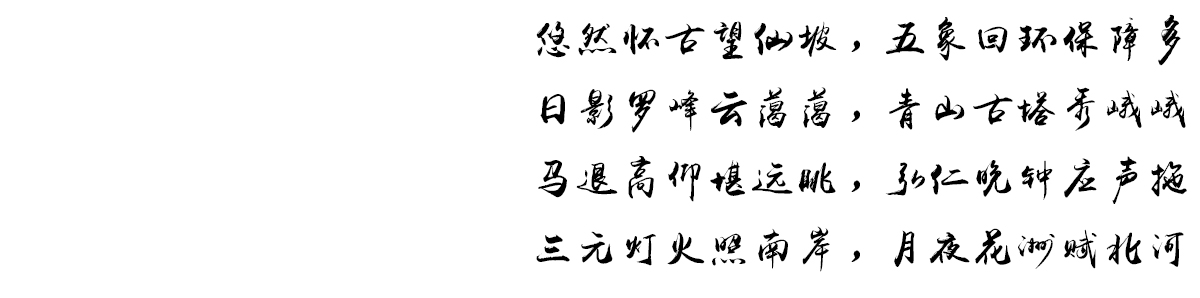 悠然怀古望仙坡，五象回环保障多
日影罗峰云蔼蔼，青山古塔秀峨峨
马退高仰堪远眺，弘仁晚钟应声拖
三元灯火照南岸，月夜花洲赋北河